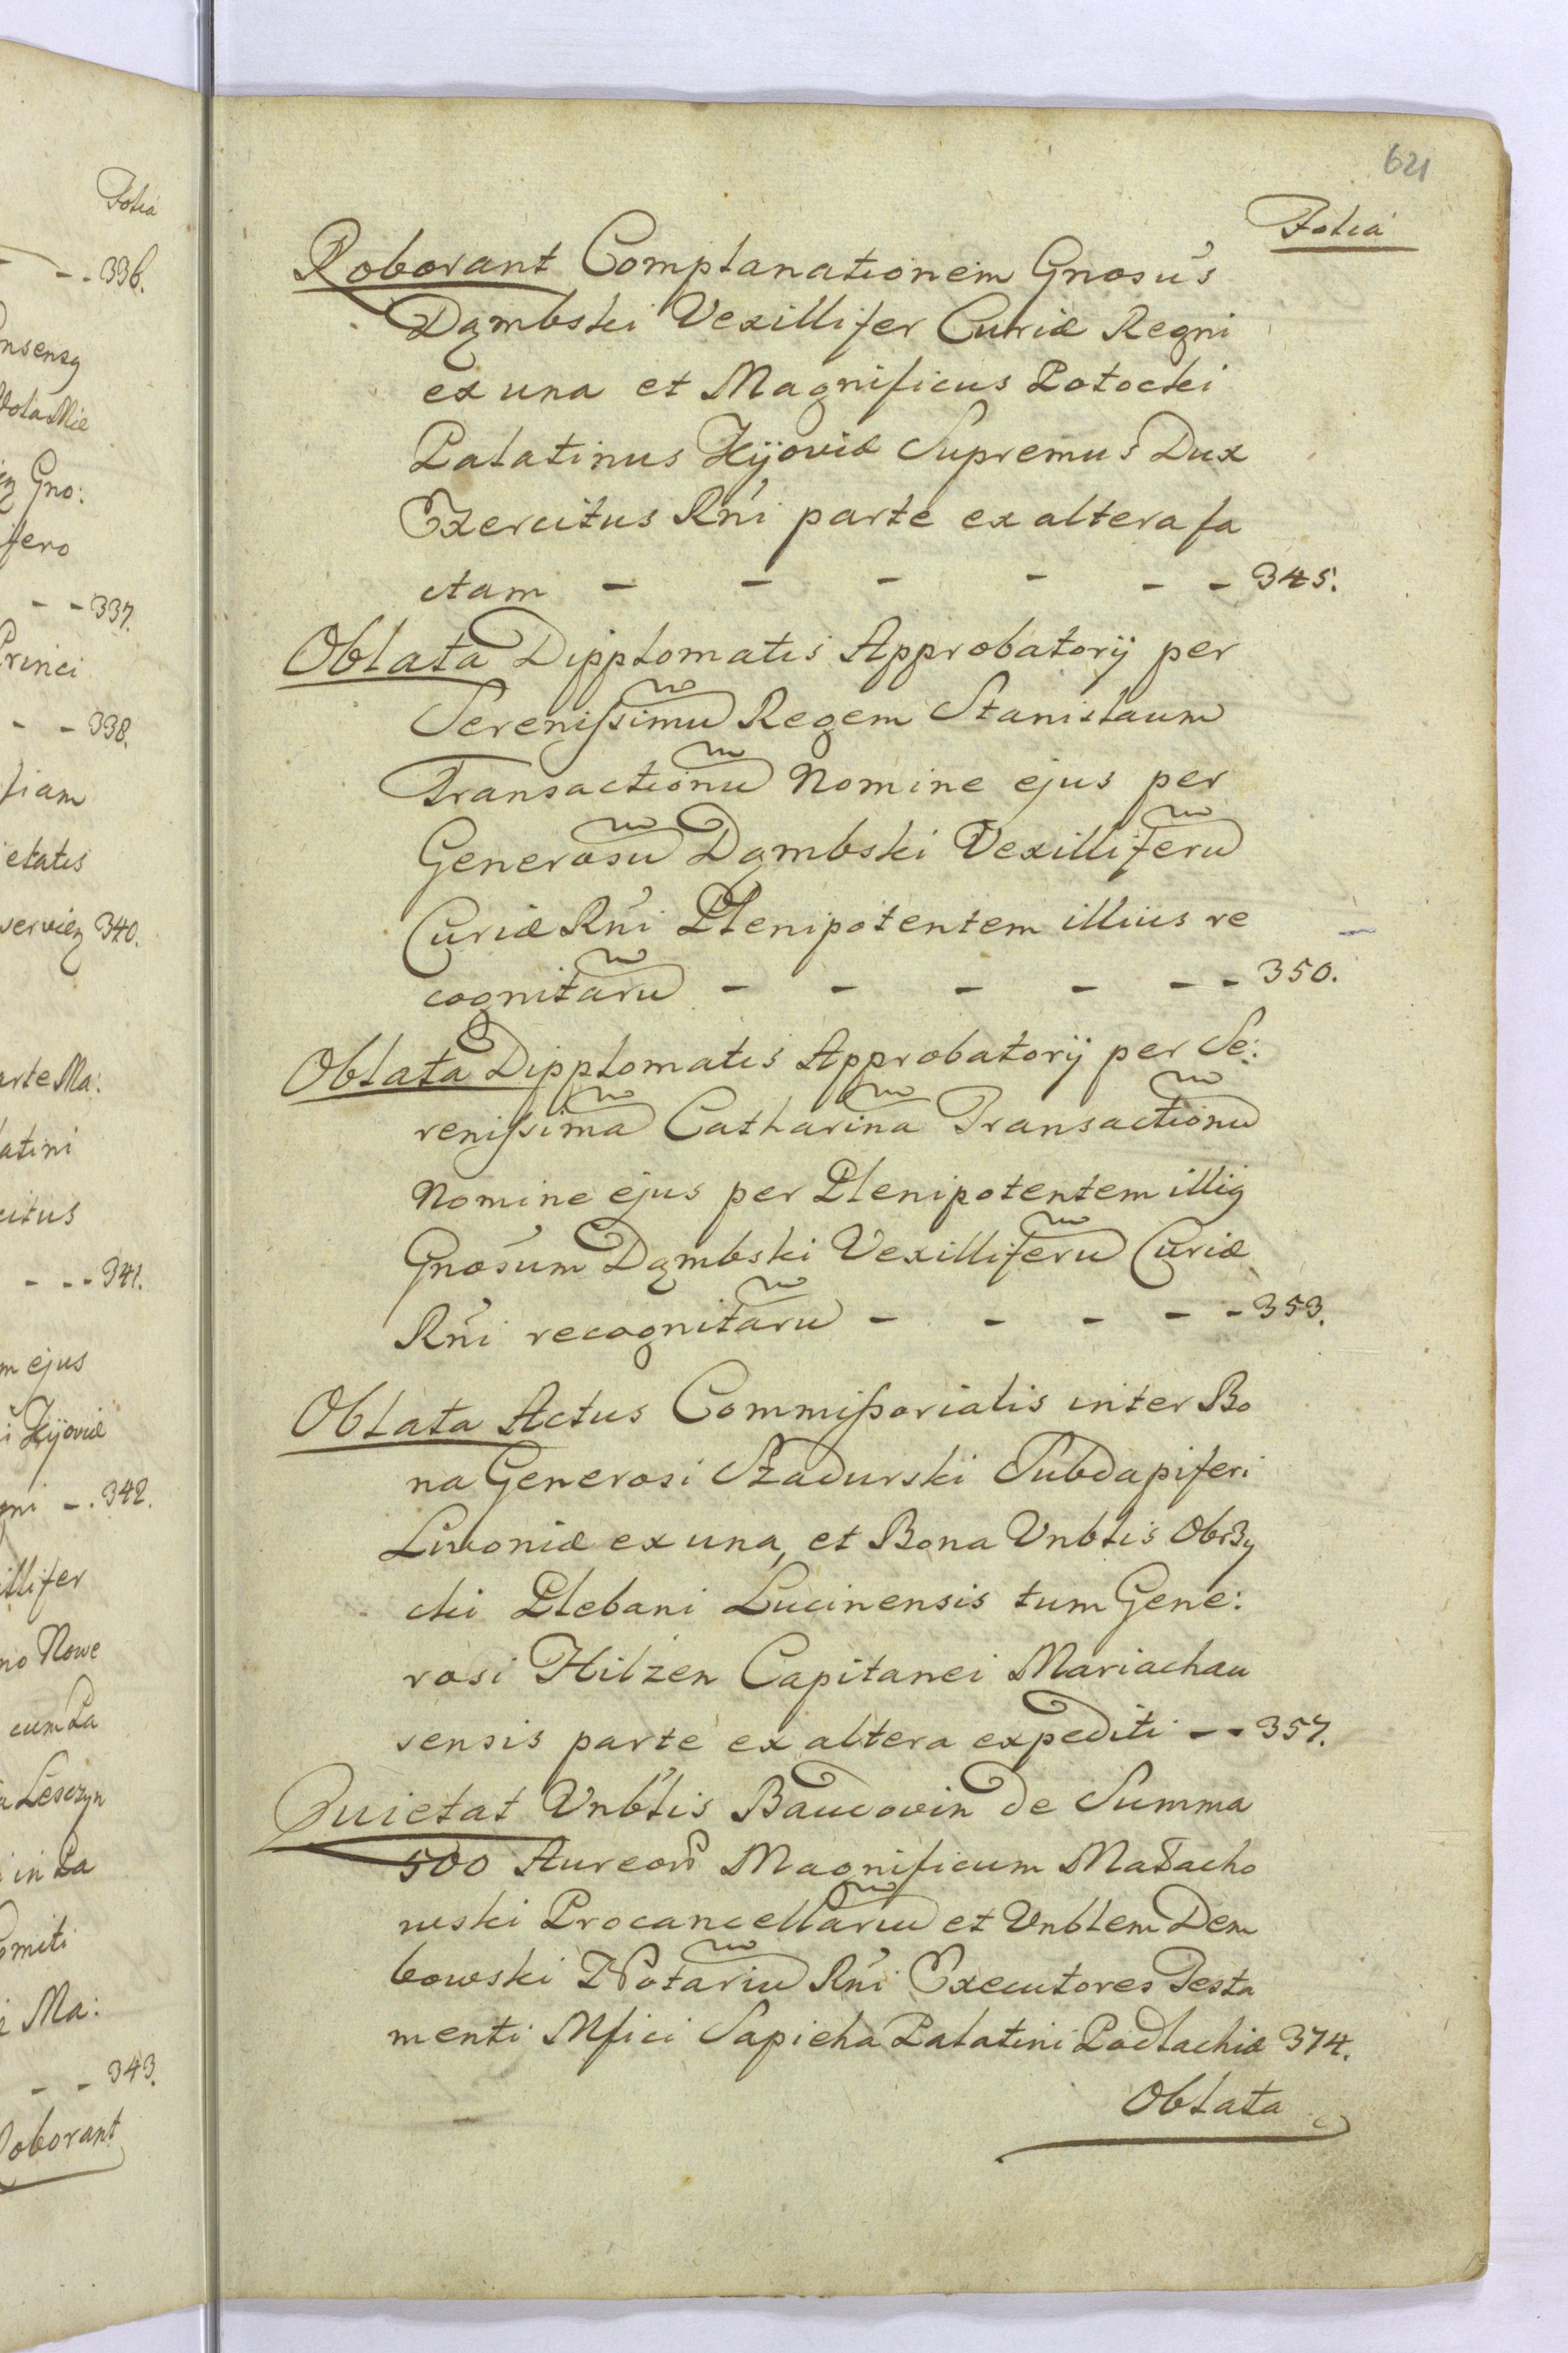 Folia
- - 336.
nsensq
Gno:
fero
- - 337.
Princi
- - 338.
etatis
340.
arte Ma:
latini
citus
- - - 341.
m ejus
i Kijoviæ
gni - . 342.
illifer
no Nowe
cum Pa
Lesczyn
in Pa
omiti
i Ma:
- - 343.
Roborant
621
Folia
Roborant Complanationem Gnosus
Dąmbski Vexillifer Curiæ Regni
ex una et Magnificus Potocki
Palatinus Kijoviæ Supremus Dux
Exercitus Rni parte ex altera fa
ctam - - - - - - 345.
Oblata Dipplomatis Approbatorij per
Serenissimū Regem Stanislaum
Transactionū Nomine ejus per
Generosū Dąmbski Vexilliferū
Curiæ Rni Plenipotentem illius re
cognitarū - - - - - - 350.
Oblata Dipplomatis Approbatorij per Se:
renissimā Catharinā Transactionū
Nomine ejus per Plenipotentem illiq
Gnosum Dąmbski Vexilliferū Curiæ
Rni recognitarū - - - - - 353.
Oblata Actus Commissorialis inter Bo
na Generosi Szadurski Subdapiferi
Livoniæ ex una, et Bona Vnblis Obrzy
cki Plebani Lucinensis tum Gene:
rosi Hilzen Capitanei Mariachau
sensis parte ex altera expediti - - 357.
Quietat Vnblis Baucovin de Summa
500 Aureorū Magnificum Małacho
wski Procancellariū et Vnblem Dem
bowski Notariū Rni Executores Testa
menti Mfici Sapieha Palatini Podlachiæ 374.
Oblata